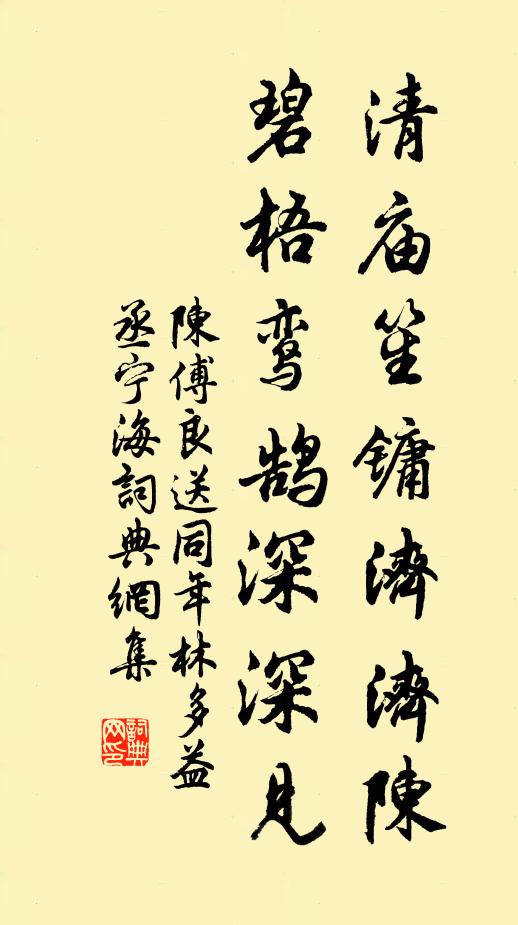 清庙笙镛濟濟陳
碧梧鸾鹄深深見
陳傅良送同年林多益
丞宁海詞典網集
詞典网印